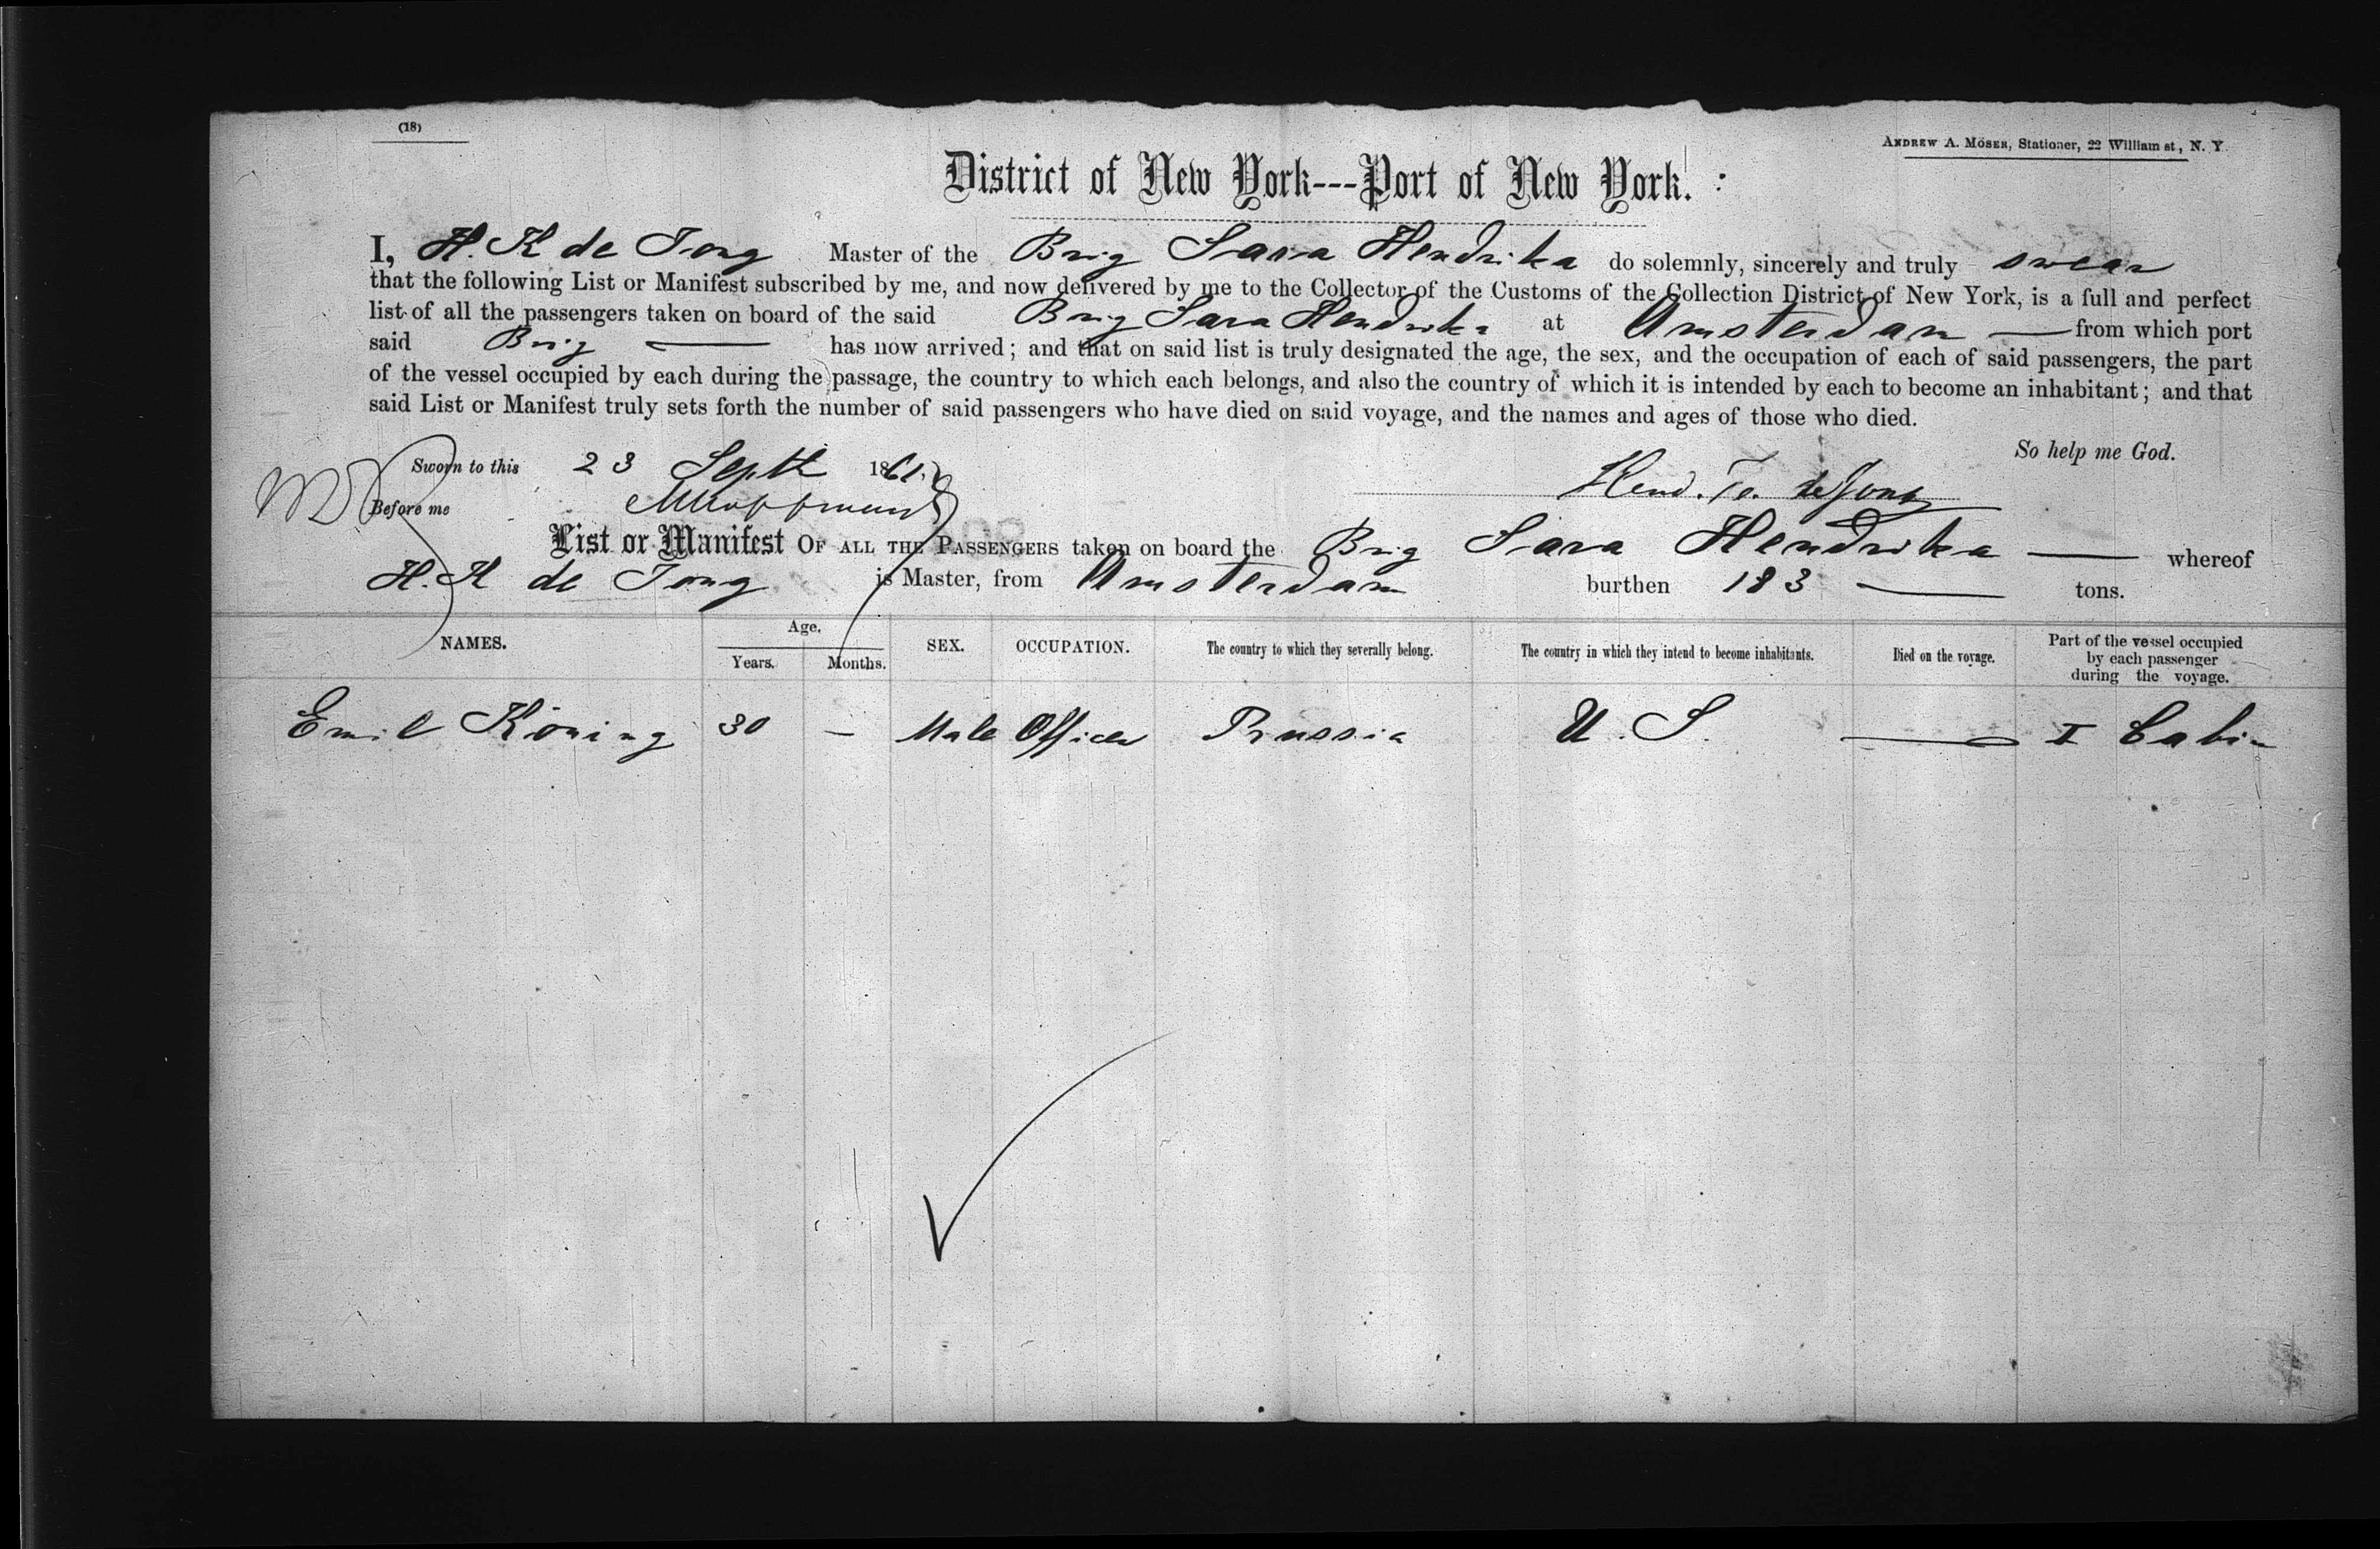 (18)
ANDREW A. MÖSER, Stationer, 22 William st, N. Y.
District of New York---Port of New York.
I, H. K de Jong Master of the Brig Sara Hendrika do solemnly, sincerely and truly swear
that the following List or Manifest subscribed by me, and now delivered by me to the Collector of the Customs of the Collection District of New York, is a full and perfect
list of all the passengers taken on board of the said Brig Sara Hendrika at Amsterdam — from which port
said Brig — has now arrived; and that on said list is truly designated the age, the sex, and the occupation of each of said passengers, the part
of the vessel occupied by each during the passage, the country to which each belongs, and also the country of which it is intended by each to become an inhabitant; and that
said List or Manifest truly sets forth the number of said passengers who have died on said voyage, and the names and ages of those who died.
So help me God.
Sworn to this 23 Septb 1861
Before me
de Jong
List or Manifest OF ALL THE PASSENGERS taken on board the Brig Sara Hendrika — whereof
H. K de Jong is Master, from Amsterdam burthen 183 — tons.
NAMES. Age. Years. Months. SEX. OCCUPATION. The country to which they severally belong. The country in which they intend to become inhabitants. Died on the voyage. Part of the vessel occupied by each passenger during the voyage.
Emil Köning 30 – Male Officer Prussia U. S. — I Cabin